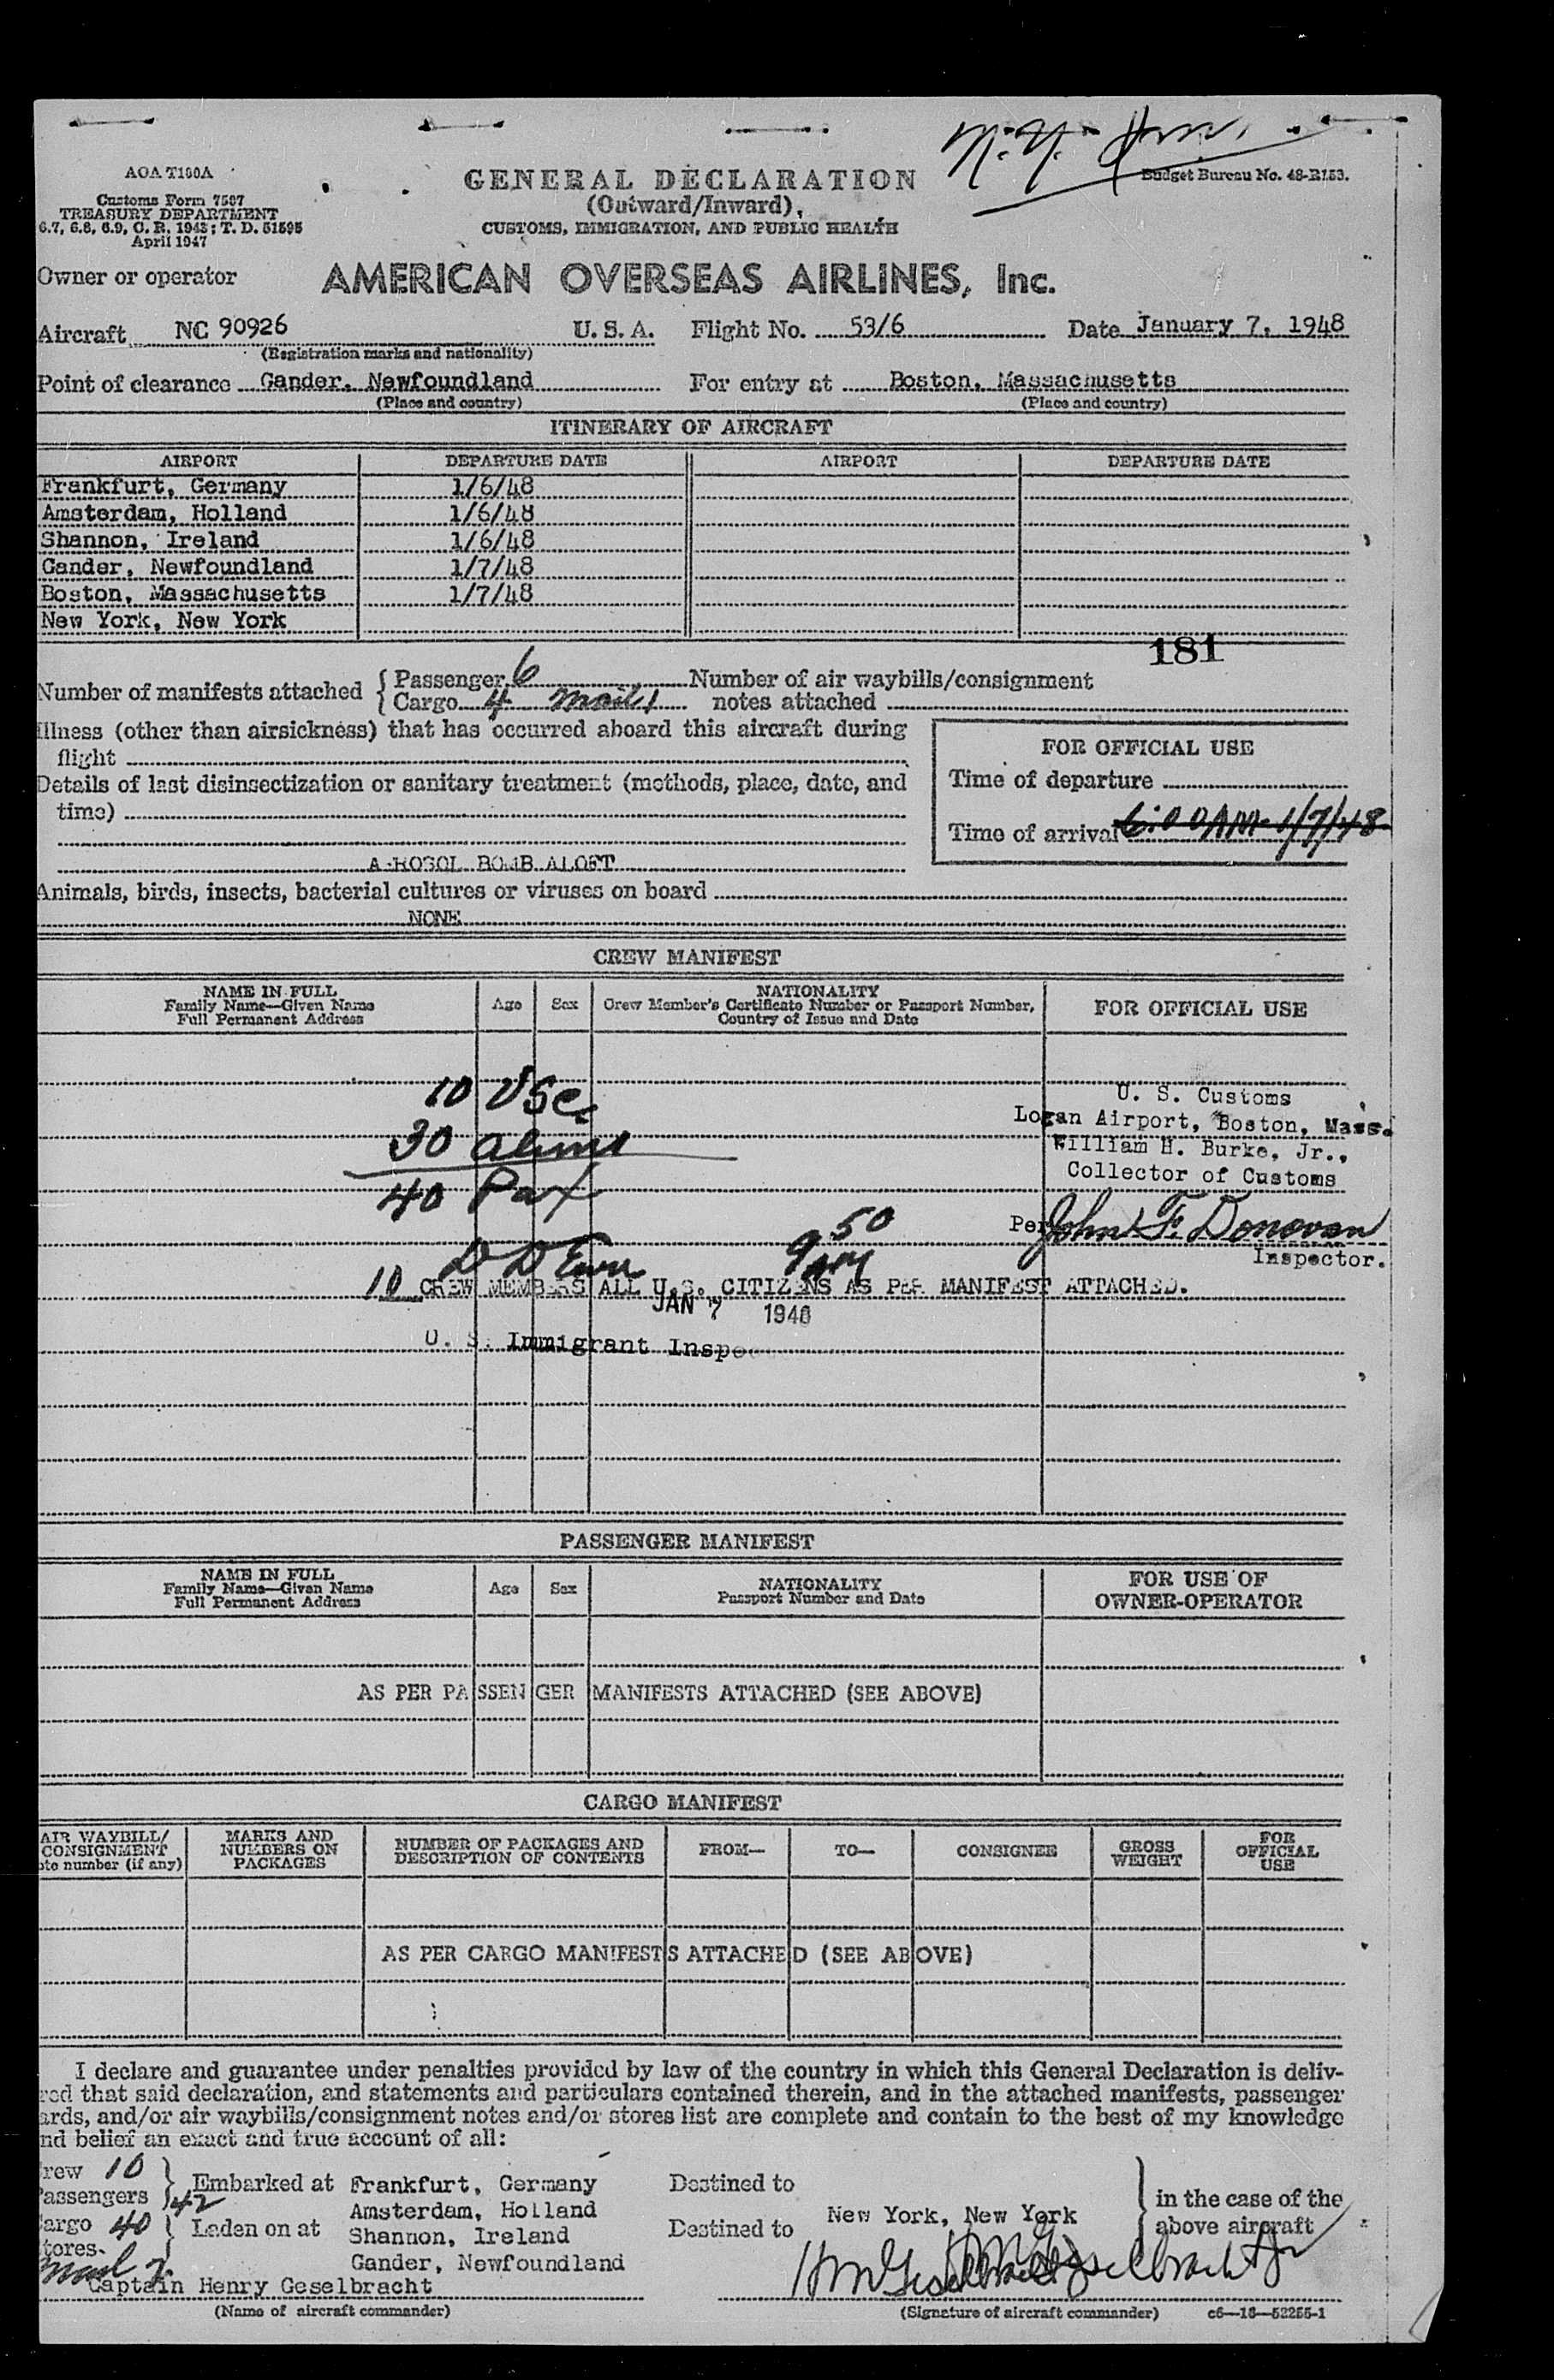 N.Y.
AOA T100A
GENERAL DECLARATION
Budget Bureau No. 48-R153.
Customs Form 7507
(Outward/Inward),
TREASURY DEPARTMENT
CUSTOMS, IMMIGRATION, AND PUBLIC HEALTH
6.7, 6.8, 6.9, C. R. 1943; T. D. 51595
April 1947
Owner or operator AMERICAN OVERSEAS AIRLINES, Inc.
Aircraft NC 90926 U. S. A. Flight No. 53/6 Date January 7, 1948
(Registration marks and nationality)
Point of clearance Gander, Newfoundland For entry at Boston, Massachusetts
(Place and country) (Place and country)
ITINERARY OF AIRCRAFT
AIRPORT DEPARTURE DATE AIRPORT DEPARTURE DATE
Frankfurt, Germany 1/6/48
Amsterdam, Holland 1/6/48
Shannon, Ireland 1/6/48
Gander, Newfoundland 1/7/48
Boston, Massachusetts 1/7/48
New York, New York
181
Number of manifests attached { Passenger 6 Number of air waybills/consignment
Cargo 4 mail 1 notes attached
Illness (other than airsickness) that has occurred aboard this aircraft during
flight
FOR OFFICIAL USE
Time of departure
Time of arrival 6:00 AM 1/7/48
Details of last disinsectization or sanitary treatment (methods, place, date, and
time)
A ROSOL BOMB ALOFT
Animals, birds, insects, bacterial cultures or viruses on board
NONE
CREW MANIFEST
NAME IN FULL
Family Name—Given Name
Full Permanent Address
Age
Sex
NATIONALITY
Crew Member's Certificate Number or Passport Number,
Country of Issue and Date
FOR OFFICIAL USE
10 USC
30 aliens
40 Pax
U. S. Customs
Logan Airport, Boston, Mass.
William H. Burke, Jr.,
Collector of Customs
Per John F. Donovan
Inspector.
9 50 AM
10 CREW MEMBERS ALL U.S. CITIZENS AS PER MANIFEST ATTACHED.
JAN 7 1948
U. S. Immigrant Inspec
PASSENGER MANIFEST
NAME IN FULL
Family Name—Given Name
Full Permanent Address
Age
Sex
NATIONALITY
Passport Number and Date
FOR USE OF
OWNER-OPERATOR
AS PER PASSENGER MANIFESTS ATTACHED (SEE ABOVE)
CARGO MANIFEST
AIR WAYBILL/
CONSIGNMENT
ote number (if any)
MARKS AND
NUMBERS ON
PACKAGES
NUMBER OF PACKAGES AND
DESCRIPTION OF CONTENTS
FROM—
TO—
CONSIGNEE
GROSS
WEIGHT
FOR
OFFICIAL
USE
AS PER CARGO MANIFESTS ATTACHED (SEE ABOVE)
I declare and guarantee under penalties provided by law of the country in which this General Declaration is deliv-
red that said declaration, and statements and particulars contained therein, and in the attached manifests, passenger
ards, and/or air waybills/consignment notes and/or stores list are complete and contain to the best of my knowledge
nd belief an exact and true account of all:
rew 10
assengers 42
Embarked at Frankfurt, Germany
Amsterdam, Holland
argo 40
tores.
mail 2
Laden on at Shannon, Ireland
Gander, Newfoundland
Destined to
New York, New York
Destined to
in the case of the
above aircraft
Captain Henry Geselbracht
HM Geselbracht Jr
(Name of aircraft commander) (Signature of aircraft commander) c6—16—52255-1